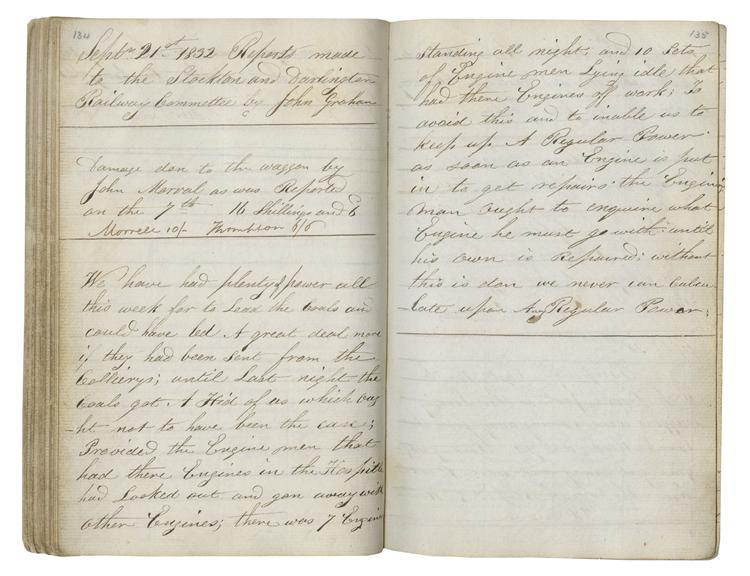 134
Septr 21st 1832 Reports made
to the Stockton and Darlington
Railway Committee by John Graham
Damage don to the waggon by
John Morral as was Reported
on the 7th 16 Shillings and 6
Morrell 10/- Thompson 6/6
We have had plenty of power all
this week for to Lead the Coals and
could have led A great deal more
if they had been sent from the
Collierys; until Last night the
Coals got A Hid of us which Oug
-ht not to have been the case;
Provided the Engine men that
had there Engines in the Hospittle
had Looked out and gon away with
other Engines; there was 7 Engines
135
standing all night; and 10 Sets
of Engine men Lying idle that
had there Engines off work; To
avoid this and to inable us to
keep up A Regular Power
as soon as an Engine is put
in to get repairs the Engine
man Ought to enquire what
Engine he must go with until
his Own is Repaired; without
this is don we never can Calcu
late upon Any Regular Power;